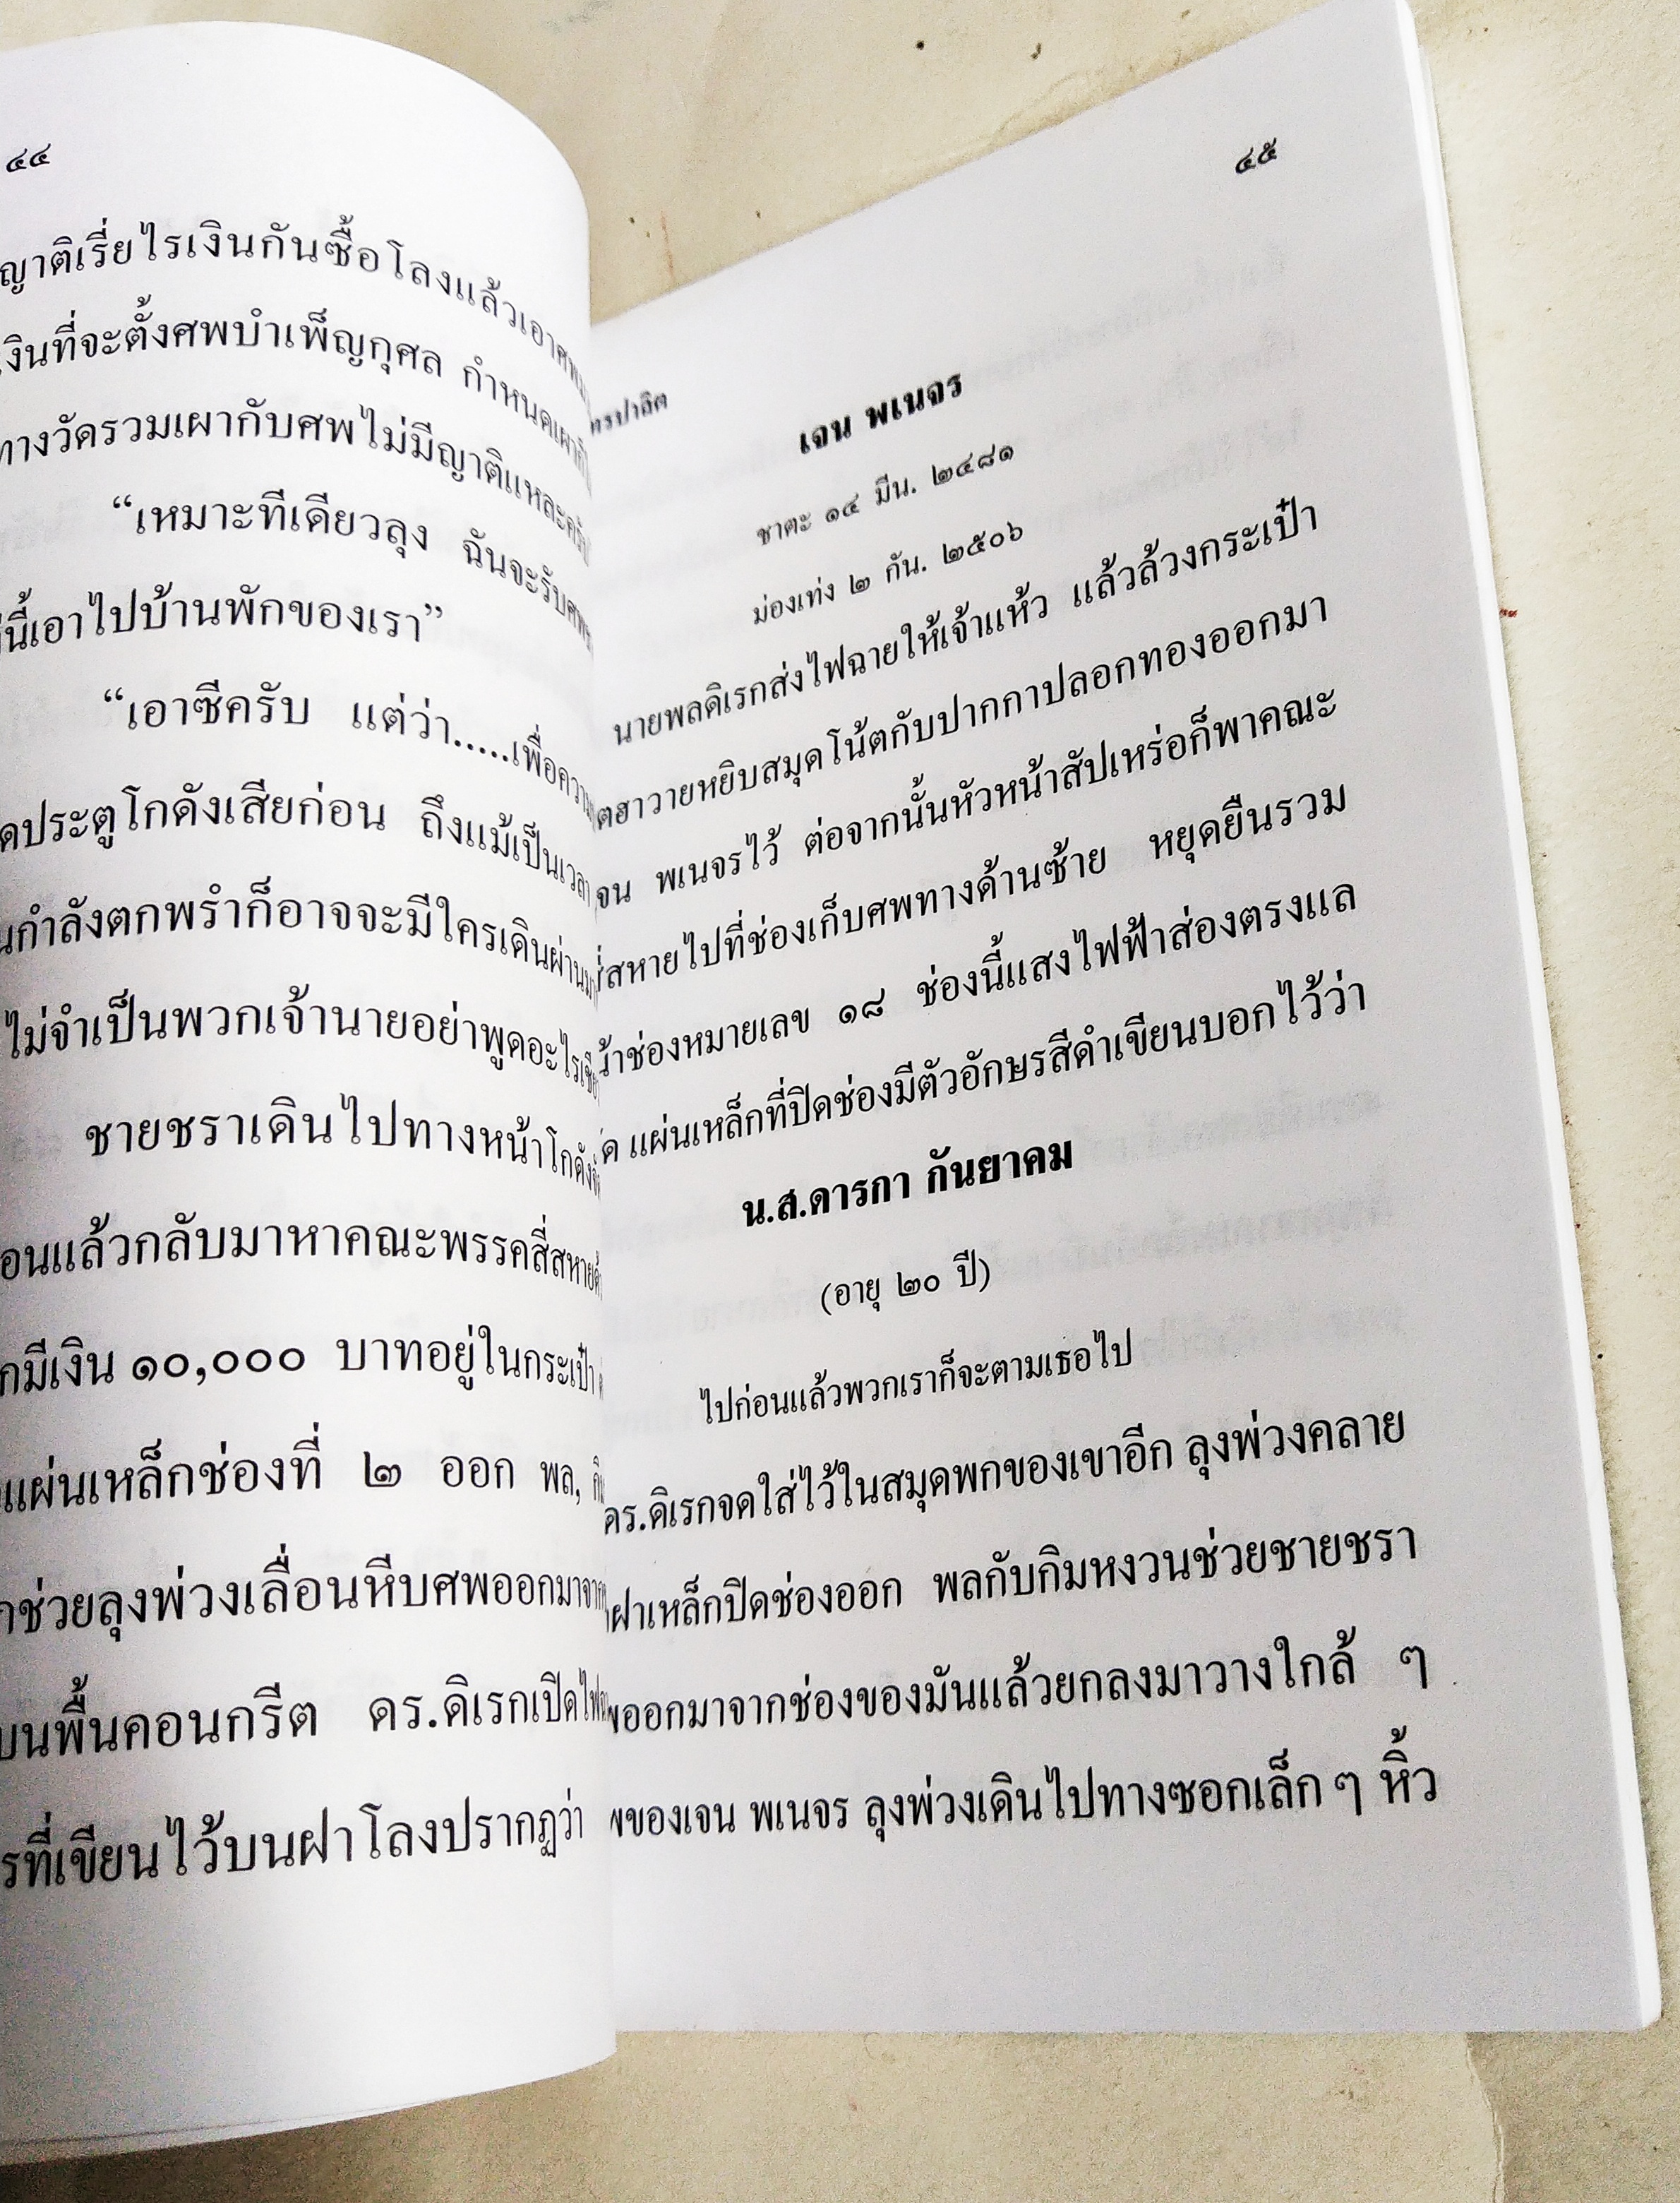 ๔๔
ญาติเรี่ยไรเงินกันซื้อโลงแล้วเอาศพ
เงินที่จะตั้งศพบำเพ็ญกุศล กำหนดเผา
ทางวัดรวมเผากับศพไม่มีญาติแหละครับ
“เหมาะทีเดียวลุง ฉันจะรับศพ
นี้เอาไปบ้านพักของเรา”
“เอาซีครับ แต่ว่า.....เพื่อความ
ประตูโกดังเสียก่อน ถึงแม้เป็นเวลา
กำลังตกพรำก็อาจจะมีใครเดินผ่าน
ไม่จำเป็นพวกเจ้านายอย่าพูดอะไร
ชายชราเดินไปทางหน้าโกดัง
แล้วกลับมาหาคณะพรรคสี่สหาย
มีเงิน ๑๐,๐๐๐ บาทอยู่ในกระเป๋า
แผ่นเหล็กช่องที่ ๒ ออก พล,
ช่วยลุงพ่วงเลื่อนหีบศพออกมาจาก
บนพื้นคอนกรีต ดร.ดิเรกเปิดไฟ
ที่เขียนไว้บนฝาโลงปรากฏว่า
๔๕
เจน พเนจร
ชาตะ ๑๔ มีน. ๒๔๘๑
ม่องเท่ง ๒ กัน. ๒๕๐๖
นายพลดิเรกส่งไฟฉายให้เจ้าแห้ว แล้วล้วงกระเป๋า
ฮาวายหยิบสมุดโน้ตกับปากกาปลอกทองออกมา
พเนจรไว้ ต่อจากนั้นหัวหน้าสัปเหร่อก็พาคณะ
สหายไปที่ช่องเก็บศพทางด้านซ้าย หยุดยืนรวม
ช่องหมายเลข ๑๘ ช่องนี้แสงไฟฟ้าส่องตรงแล
แผ่นเหล็กที่ปิดช่องมีตัวอักษรสีดำเขียนบอกไว้ว่า
น.ส.ดารกา กันยาคม
(อายุ ๒๐ ปี)
ไปก่อนแล้วพวกเราก็จะตามเธอไป
ดร.ดิเรกจดใส่ไว้ในสมุดพกของเขาอีก ลุงพ่วงคลาย
ฝาเหล็กปิดช่องออก พลกับกิมหงวนช่วยชายชรา
ออกมาจากช่องของมันแล้วยกลงมาวางใกล้ ๆ
ของเจน พเนจร ลุงพ่วงเดินไปทางซอกเล็ก ๆ หิ้ว